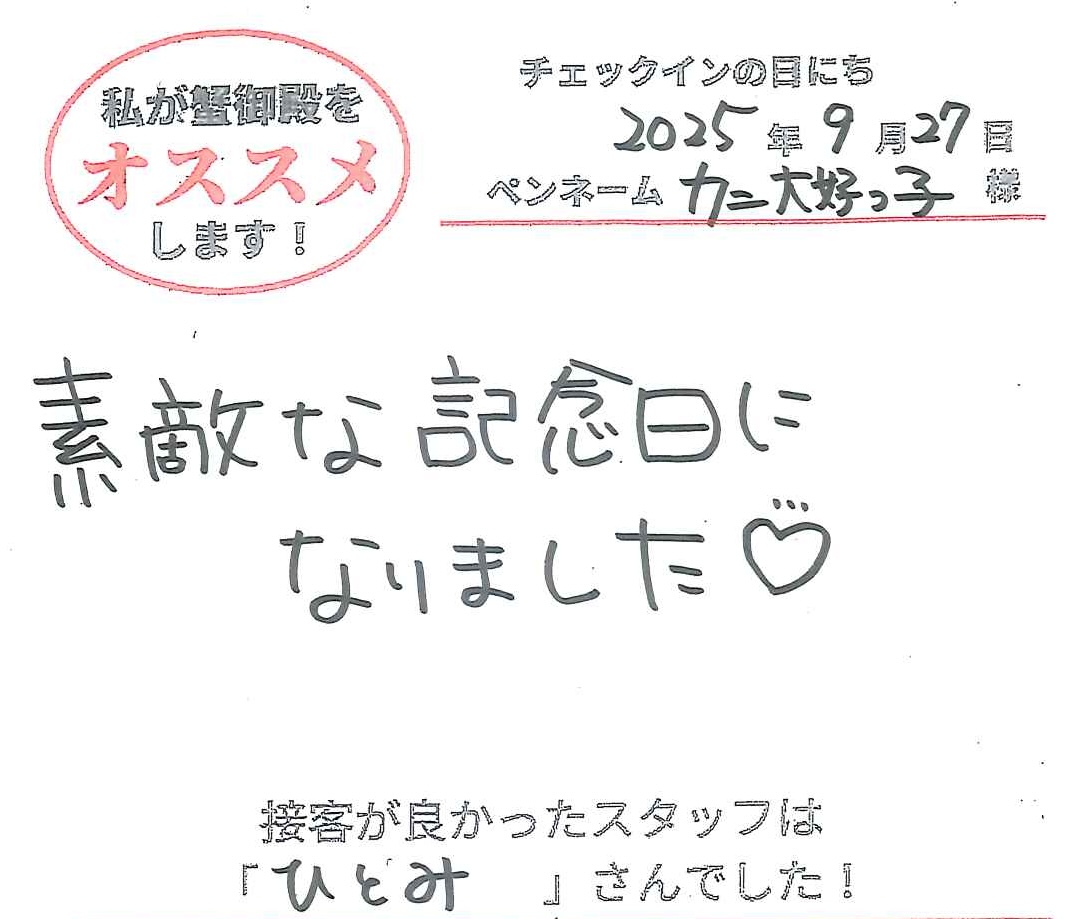 私が蟹御殿を
オススメ
します！
チェックインの日にち
2025年9月27日
ペンネーム カニ大好っ子 様
素敵な記念日に
なりました♡
接客が良かったスタッフは
「ひとみ」さんでした！